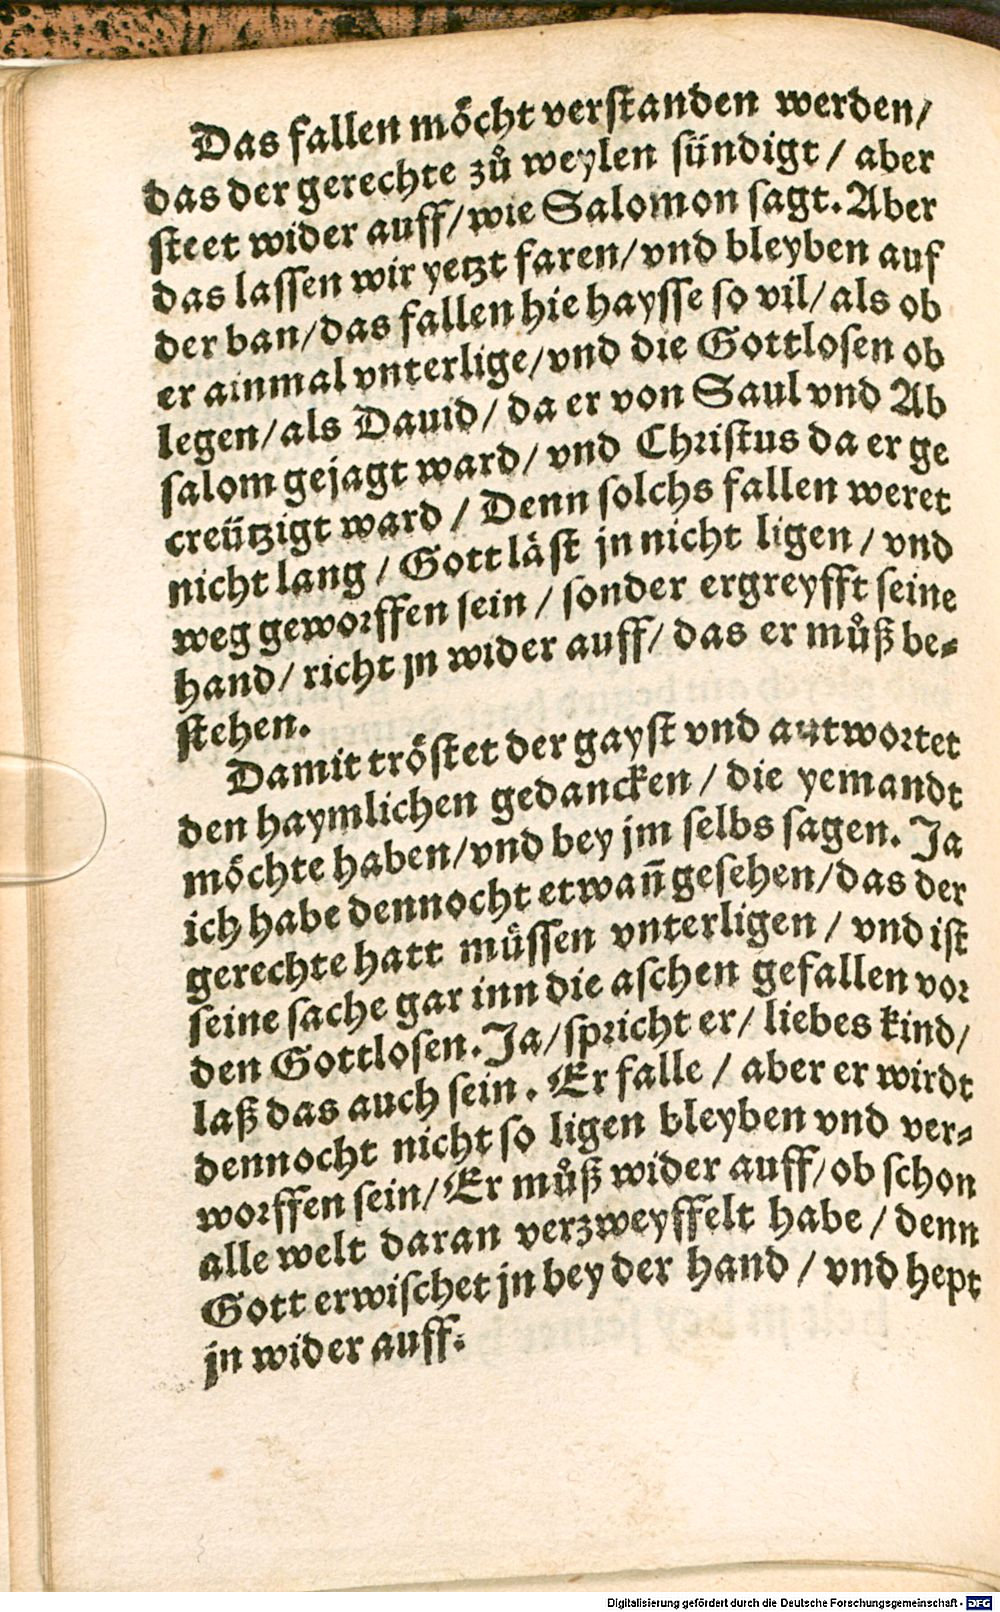 Das fallen möcht verstanden werden/
das der gerechte zů weylen sündigt / aber
steet wider auff/wie Salomon sagt. Aber
das lassen wir yetzt faren/vnd bleyben auf
der ban/das fallen hie haysse so vil/ als ob
er ainmal vnterlige/vnd die Gottlosen ob
legen/als Dauid/ da er von Saul vnd Ab
salom gejagt ward/ vnd Christus da er ge
creützigt ward / Denn solchs fallen weret
nicht lang / Gott läst jn nicht ligen / vnd
weg geworffen sein / sonder ergreyfft seine
hand/ richt jn wider auff/ das er můß be-
stehen.
Damit tröstet der gayst vnd antwortet
den haymlichen gedancken / die yemandt
möchte haben/vnd bey jm selbs sagen. Ja
ich habe dennocht etwañ gesehen/das der
gerechte hatt müssen vnterligen / vnd ist
seine sache gar inn die aschen gefallen vor
den Gottlosen. Ja/spricht er/ liebes kind/
laß das auch sein. Er falle / aber er wirdt
dennocht nicht so ligen bleyben vnd ver-
worffen sein/ Er můß wider auff/ob schon
alle welt daran verzweyffelt habe / denn
Gott erwischet jn bey der hand / vnd hept
jn wider auff.
Digitalisierung gefördert durch die Deutsche Forschungsgemeinschaft - DFG